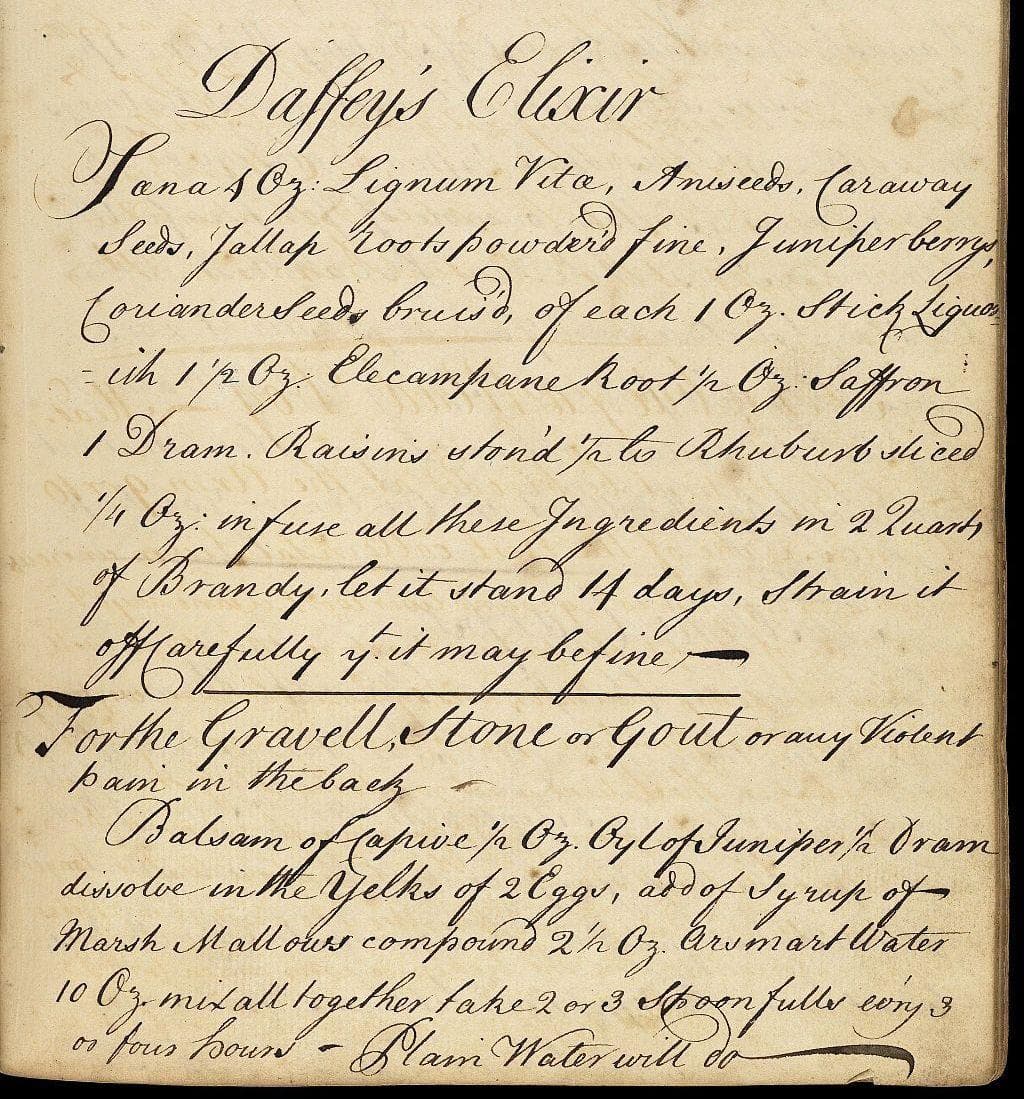 Daffey's Elixir
Sæna 4 Oz: Lignum Vitæ, Aniseeds, Caraway
Seeds, Jallap Roots powder'd fine, Juniperberrys,
Coriander Seeds bruis'd, of each 1 Oz. Stick Liquor=
=ish 1 1/2 Oz: Elecampane Root 1/2 Oz: Saffron
1 Dram. Raisins ston'd 1/2 lb Rhuburb sliced
1/4 Oz: infuse all these Ingredients in 2 Quarts
of Brandy, let it stand 14 days, Strain it
off Carefully yt. it may be fine,—
For the Gravell, Stone or Gout or any Violent
pain in the back —
Balsam of Capive 1/2 Oz. Oyl of Juniper 1/2 Dram
dissolve in the Yelks of 2 Eggs, add of Syrup of
Marsh Mallows compound 2 1/2 Oz. Arsmart Water
10 Oz. mix all together take 2 or 3 Spoonfulls ev'ry 3
or four hours - Plain Water will do —